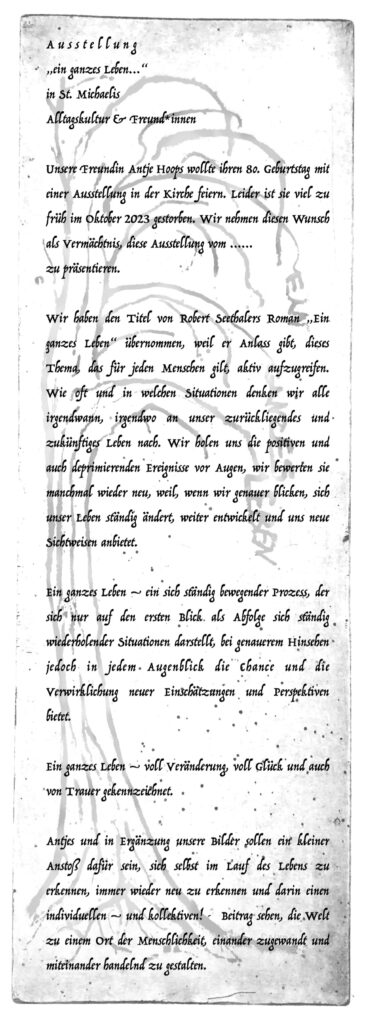 Ausstellung
„ein ganzes Leben…“
in St. Michaelis
Alltagskultur & Freund*innen
Unsere Freundin Antje Hoops wollte ihren 80. Geburtstag mit
einer Ausstellung in der Kirche feiern. Leider ist sie viel zu
früh im Oktober 2023 gestorben. Wir nehmen diesen Wunsch
als Vermächtnis, diese Ausstellung vom ......
zu präsentieren.
Wir haben den Titel von Robert Seethalers Roman „Ein
ganzes Leben“ übernommen, weil er Anlass gibt, dieses
Thema, das für jeden Menschen gilt, aktiv aufzugreifen.
Wie oft und in welchen Situationen denken wir alle
irgendwann, irgendwo an unser zurückliegendes und
zukünftiges Leben nach. Wir holen uns die positiven und
auch deprimierenden Ereignisse vor Augen, wir bewerten sie
manchmal wieder neu, weil, wenn wir genauer blicken, sich
unser Leben ständig ändert, weiter entwickelt und uns neue
Sichtweisen anbietet.
Ein ganzes Leben ~ ein sich ständig bewegender Prozess, der
sich nur auf den ersten Blick als Abfolge sich ständig
wiederholender Situationen darstellt, bei genauerem Hinsehen
jedoch in jedem Augenblick die Chance und die
Verwirklichung neuer Einschätzungen und Perspektiven
bietet.
Ein ganzes Leben ~ voll Veränderung, voll Glück und auch
von Trauer gekennzeichnet.
Antjes und in Ergänzung unsere Bilder sollen ein kleiner
Anstoß dafür sein, sich selbst im Lauf des Lebens zu
erkennen, immer wieder neu zu erkennen und darin einen
individuellen ~ und kollektiven! - Beitrag sehen, die Welt
zu einem Ort der Menschlichkeit, einander zugewandt und
miteinander handelnd zu gestalten.